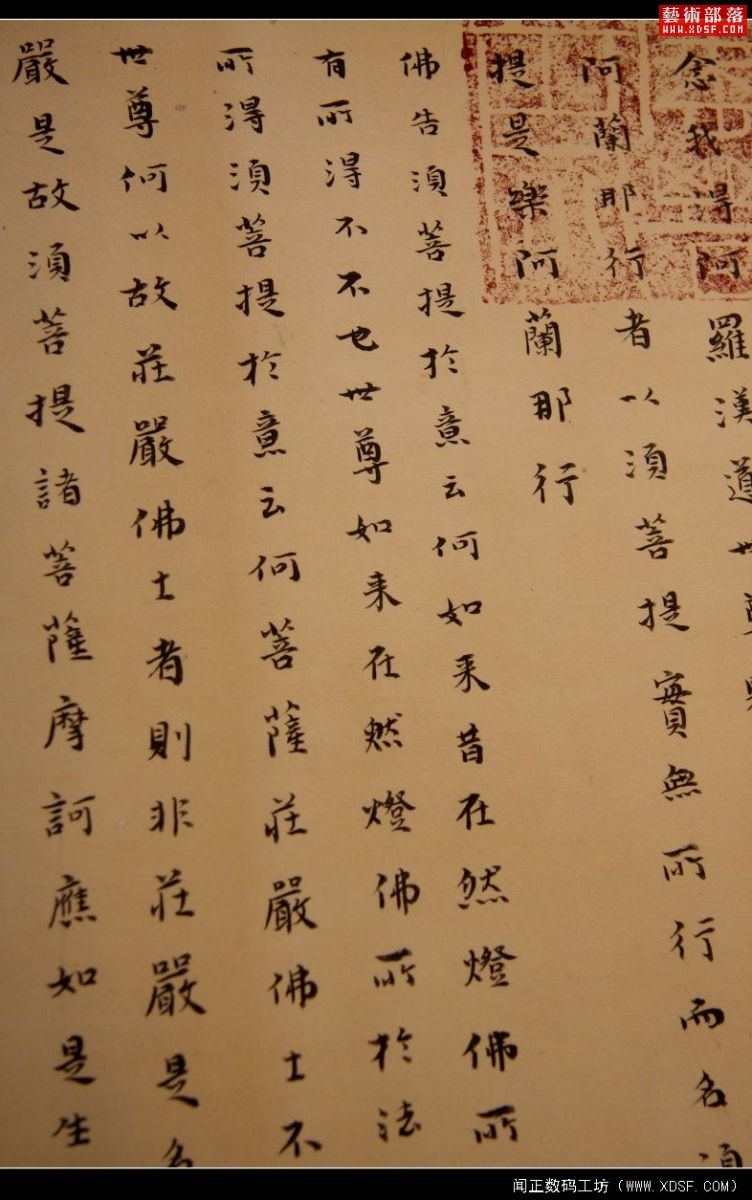 藝術部落
WWW.XDSF.COM
念我得阿羅漢道世尊
阿蘭那行者以須菩提實無所行而名須
提是樂阿蘭那行
佛告須菩提於意云何如来昔在然燈佛所
有所得不不也世尊如来在燃燈佛所於法
所得須菩提於意云何菩薩莊嚴佛土不
世尊何以故莊嚴佛土者則非莊嚴是名
嚴是故須菩提諸菩薩摩訶應如是生
闻正数码工坊（WWW.XDSF.COM）